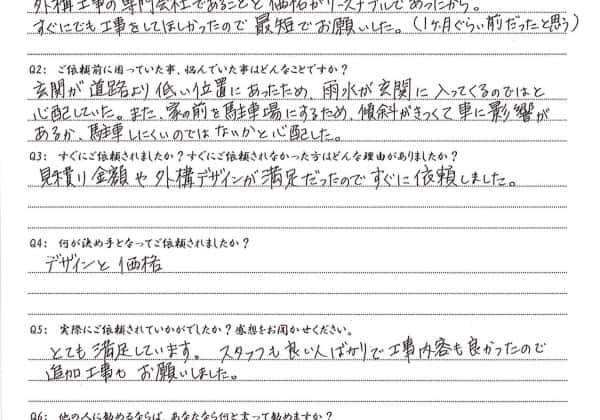 外構工事の専門会社であることと価格がリーズナブルであったから。
すぐにでも工事をしてほしかったので最短でお願いした。(1ヶ月ぐらい前だったと思う)
Q2: ご依頼前に困っていた事、悩んでいた事はどんなことですか?
玄関が道路より低い位置にあったため、雨水が玄関に入ってくるのではと
心配していた。また、家の前を駐車場にするため、傾斜がきつくて車に影響が
あるか、駐車しにくいのではないかと心配した。
Q3: すぐにご依頼されましたか?すぐにご依頼されなかった方はどんな理由がありましたか?
見積り金額や外構デザインが満足だったのですぐに依頼しました。
Q4: 何が決め手となってご依頼されましたか?
デザインと価格
Q5: 実際にご依頼されていかがでしたか?感想をお聞かせください。
とても満足しています。スタッフも良い人ばかりで工事内容も良かったので
追加工事もお願いしました。
Q6: 他の人に勧めるならば、あなたなら何と言って勧めますか?